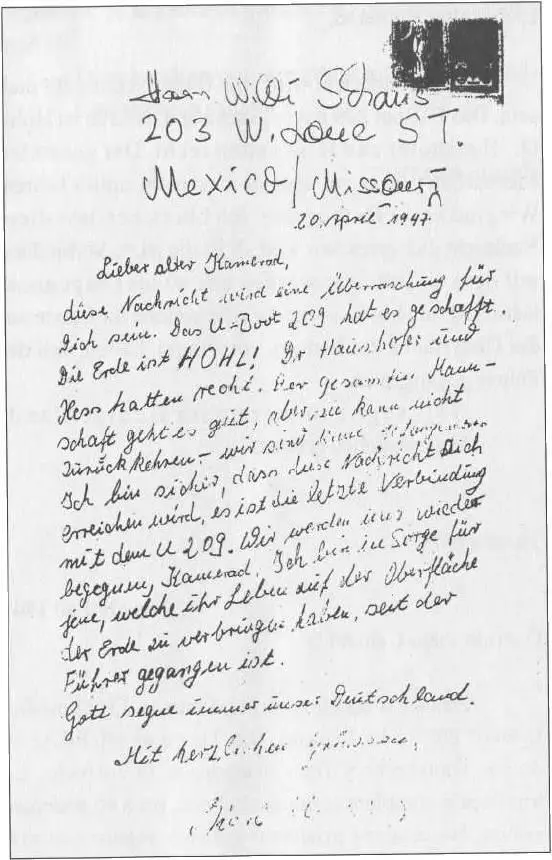 Herrn Willi Schaus
203 W. Love ST.
Mexico, Missouri
20. April 1947
Lieber alter Kamerad,
diese Nachricht wird eine Überraschung für
Dich sein. Das U-Boot 209 hat es geschafft.
Die Erde ist HOHL! Dr Haushofer und
Hess hatten recht. Der gesamten Mann-
schaft geht es gut, aber sie kann nicht
zurückkehren – wir sind keine Gefangenen
Ich bin sicher, dass diese Nachricht Dich
erreichen wird, es ist die letzte Verbindung
mit dem U 209. Wir werden uns wieder
begegnen, Kamerad. Ich bin in Sorge für
jene, welche ihr Leben auf der Oberfläche
der Erde zu verbringen haben, seit der
Führer gegangen ist.
Gott segne immer unser Deutschland.
Mit herzlichen Grüssen,